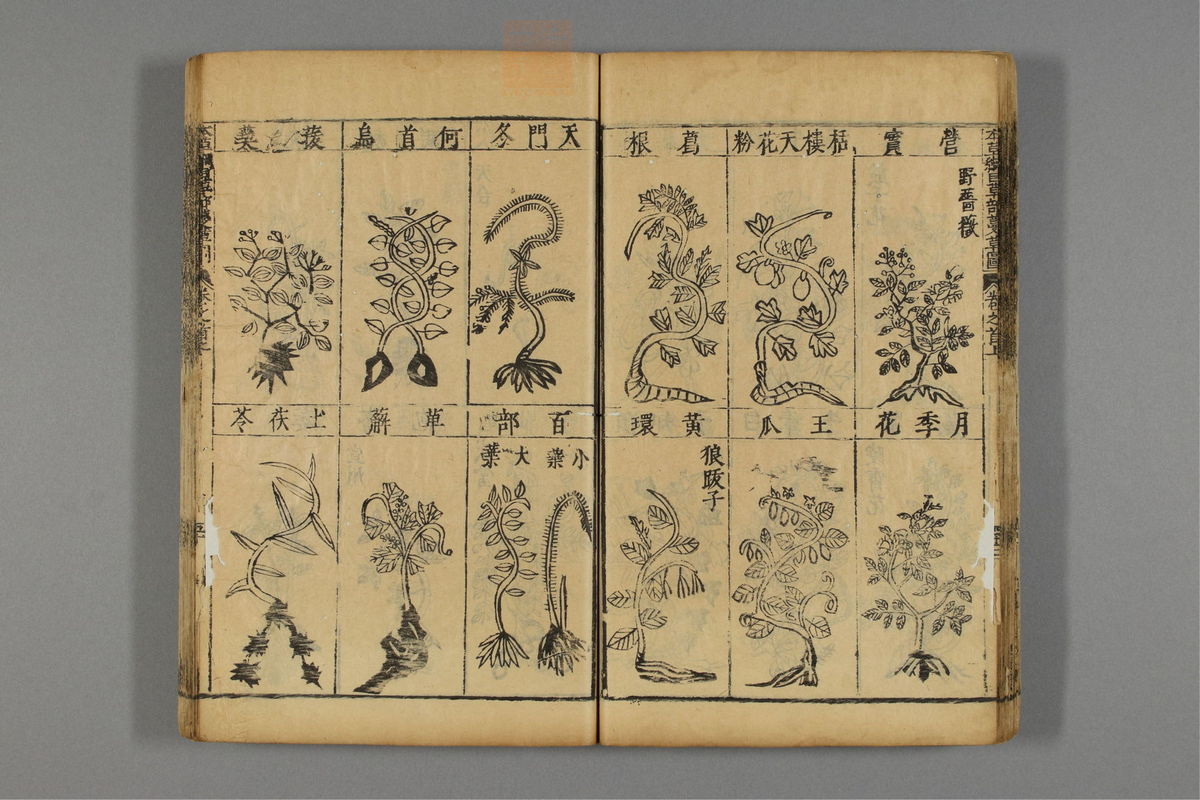 營實
野薔薇
栝樓天花粉
葛根
月季花
王瓜
黃環
狼跋子
天門冬
何首烏
百部
小葉
大葉
萆薢
土茯苓